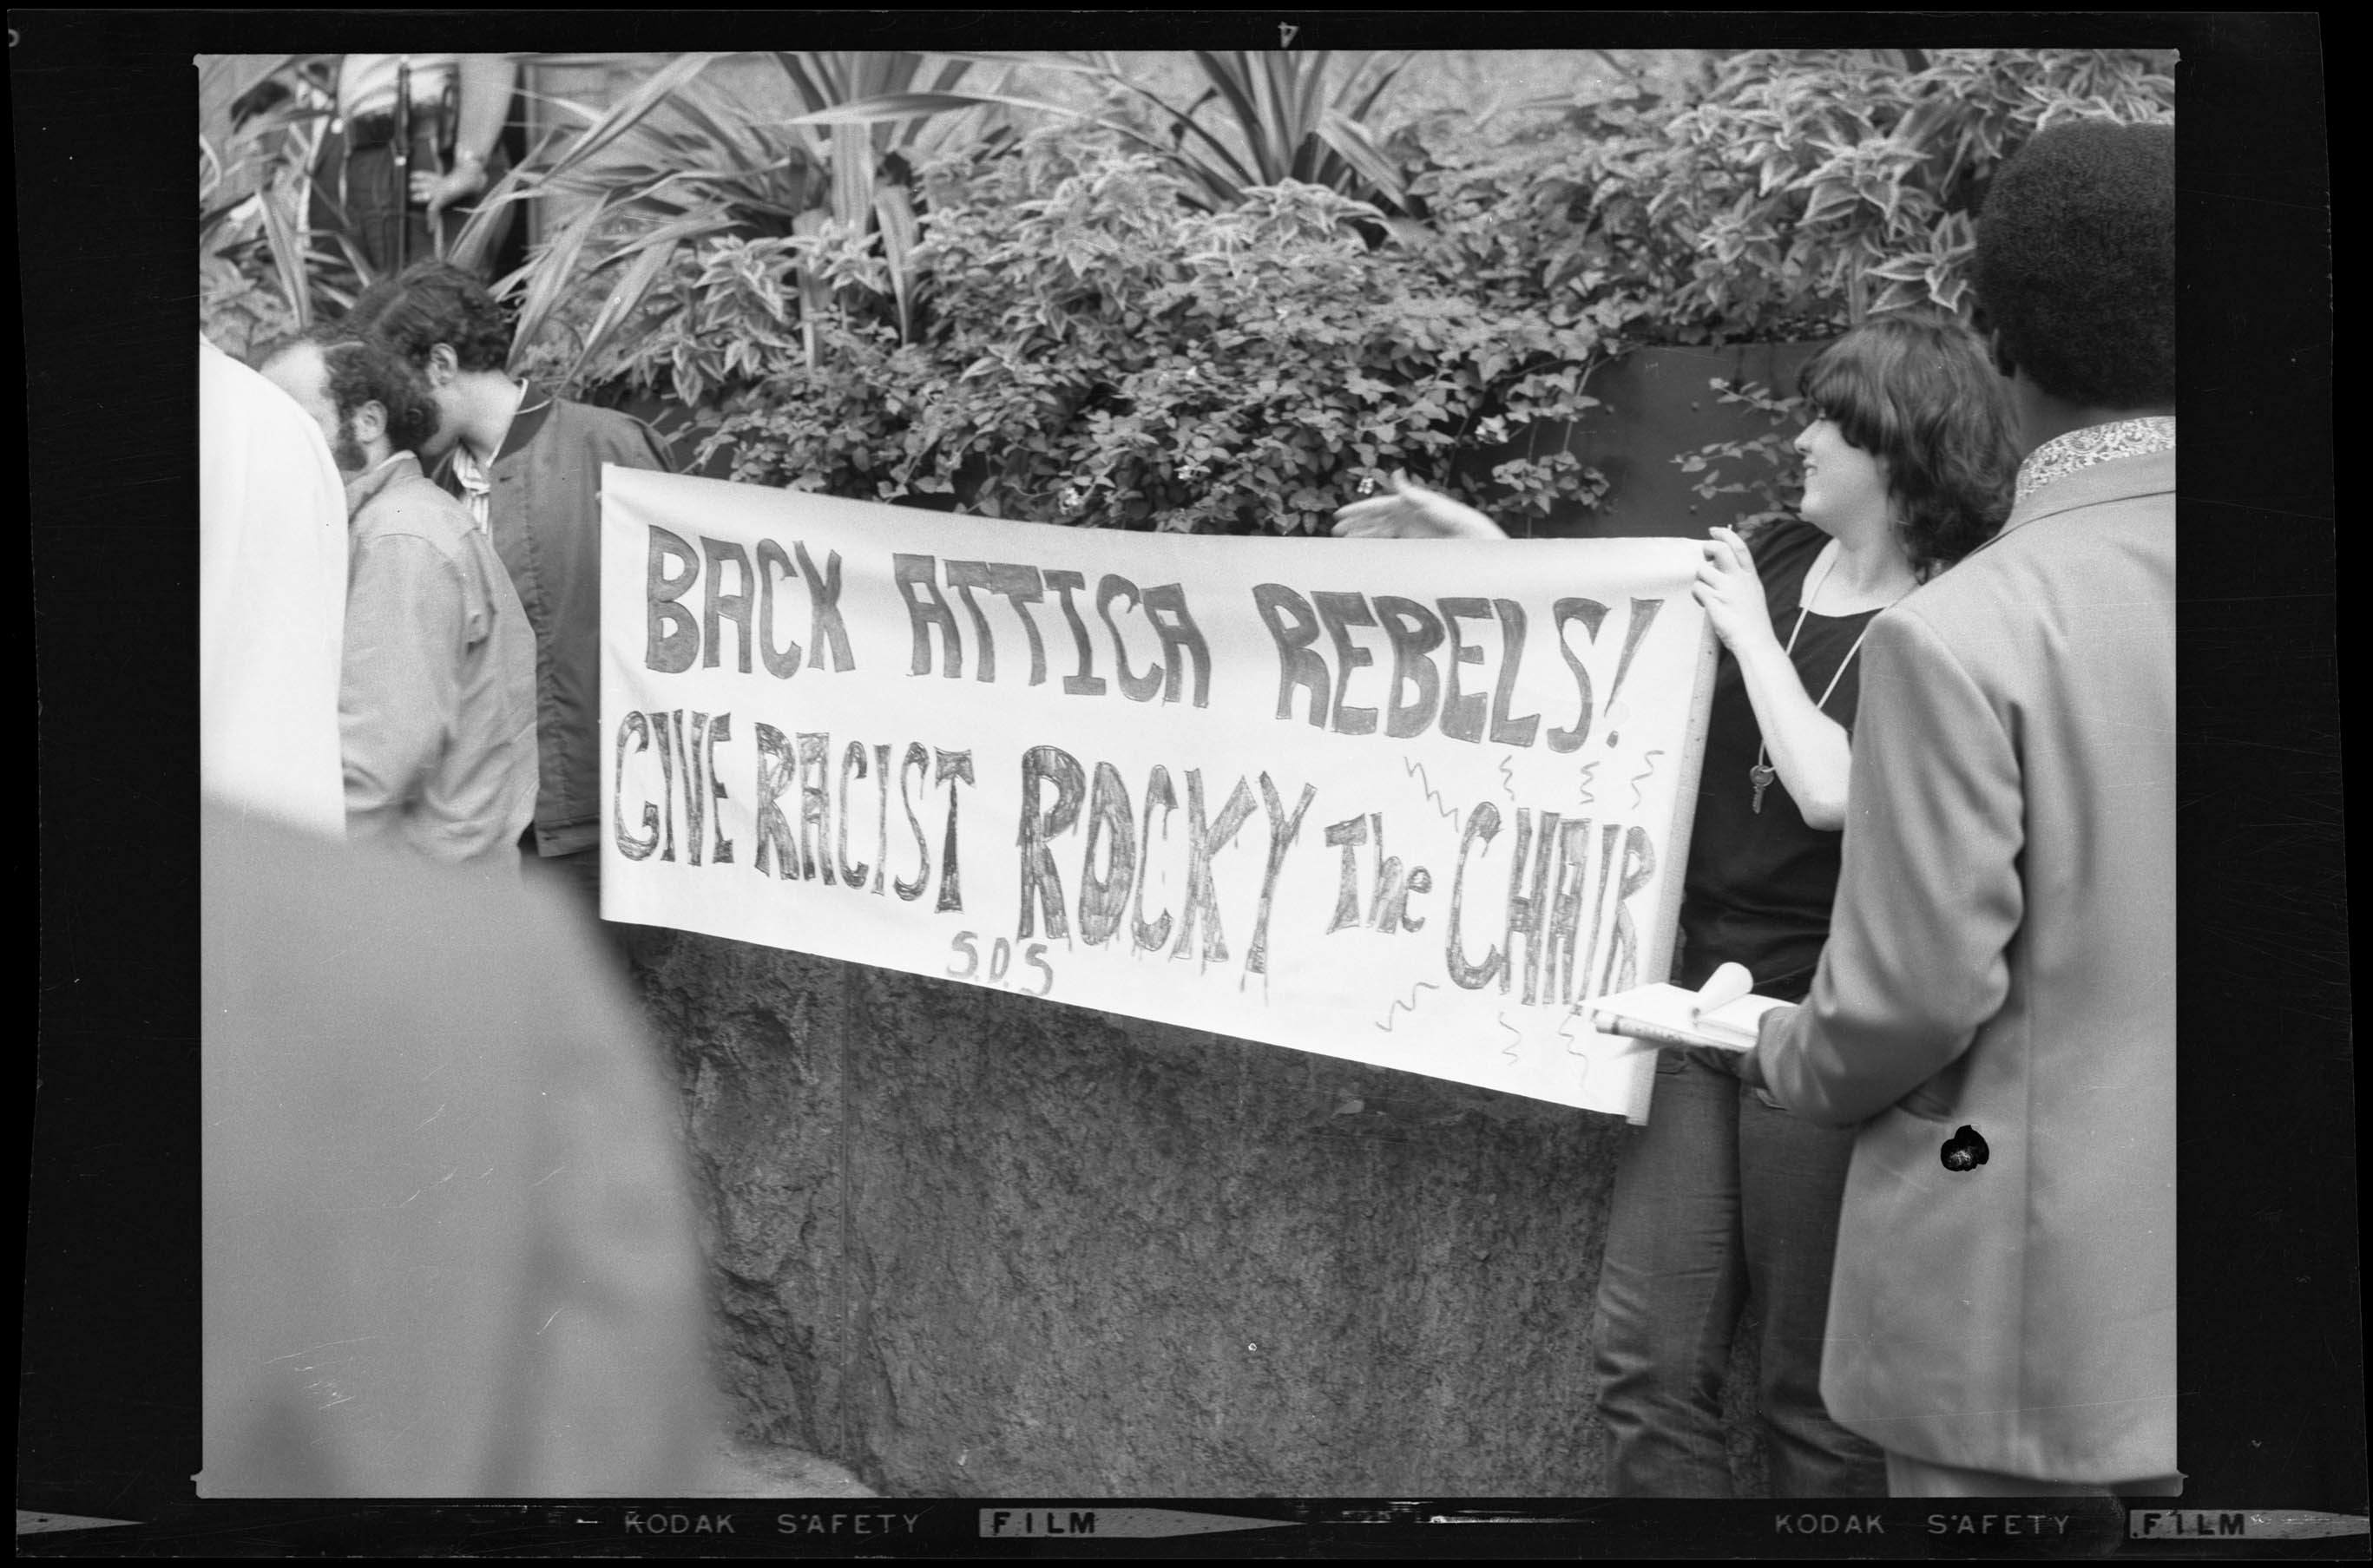 4
BACK ATTICA REBELS!
GIVE RACIST ROCKY The CHAIR
S.D.S
KODAK SAFETY FILM
KODAK SAFETY FILM